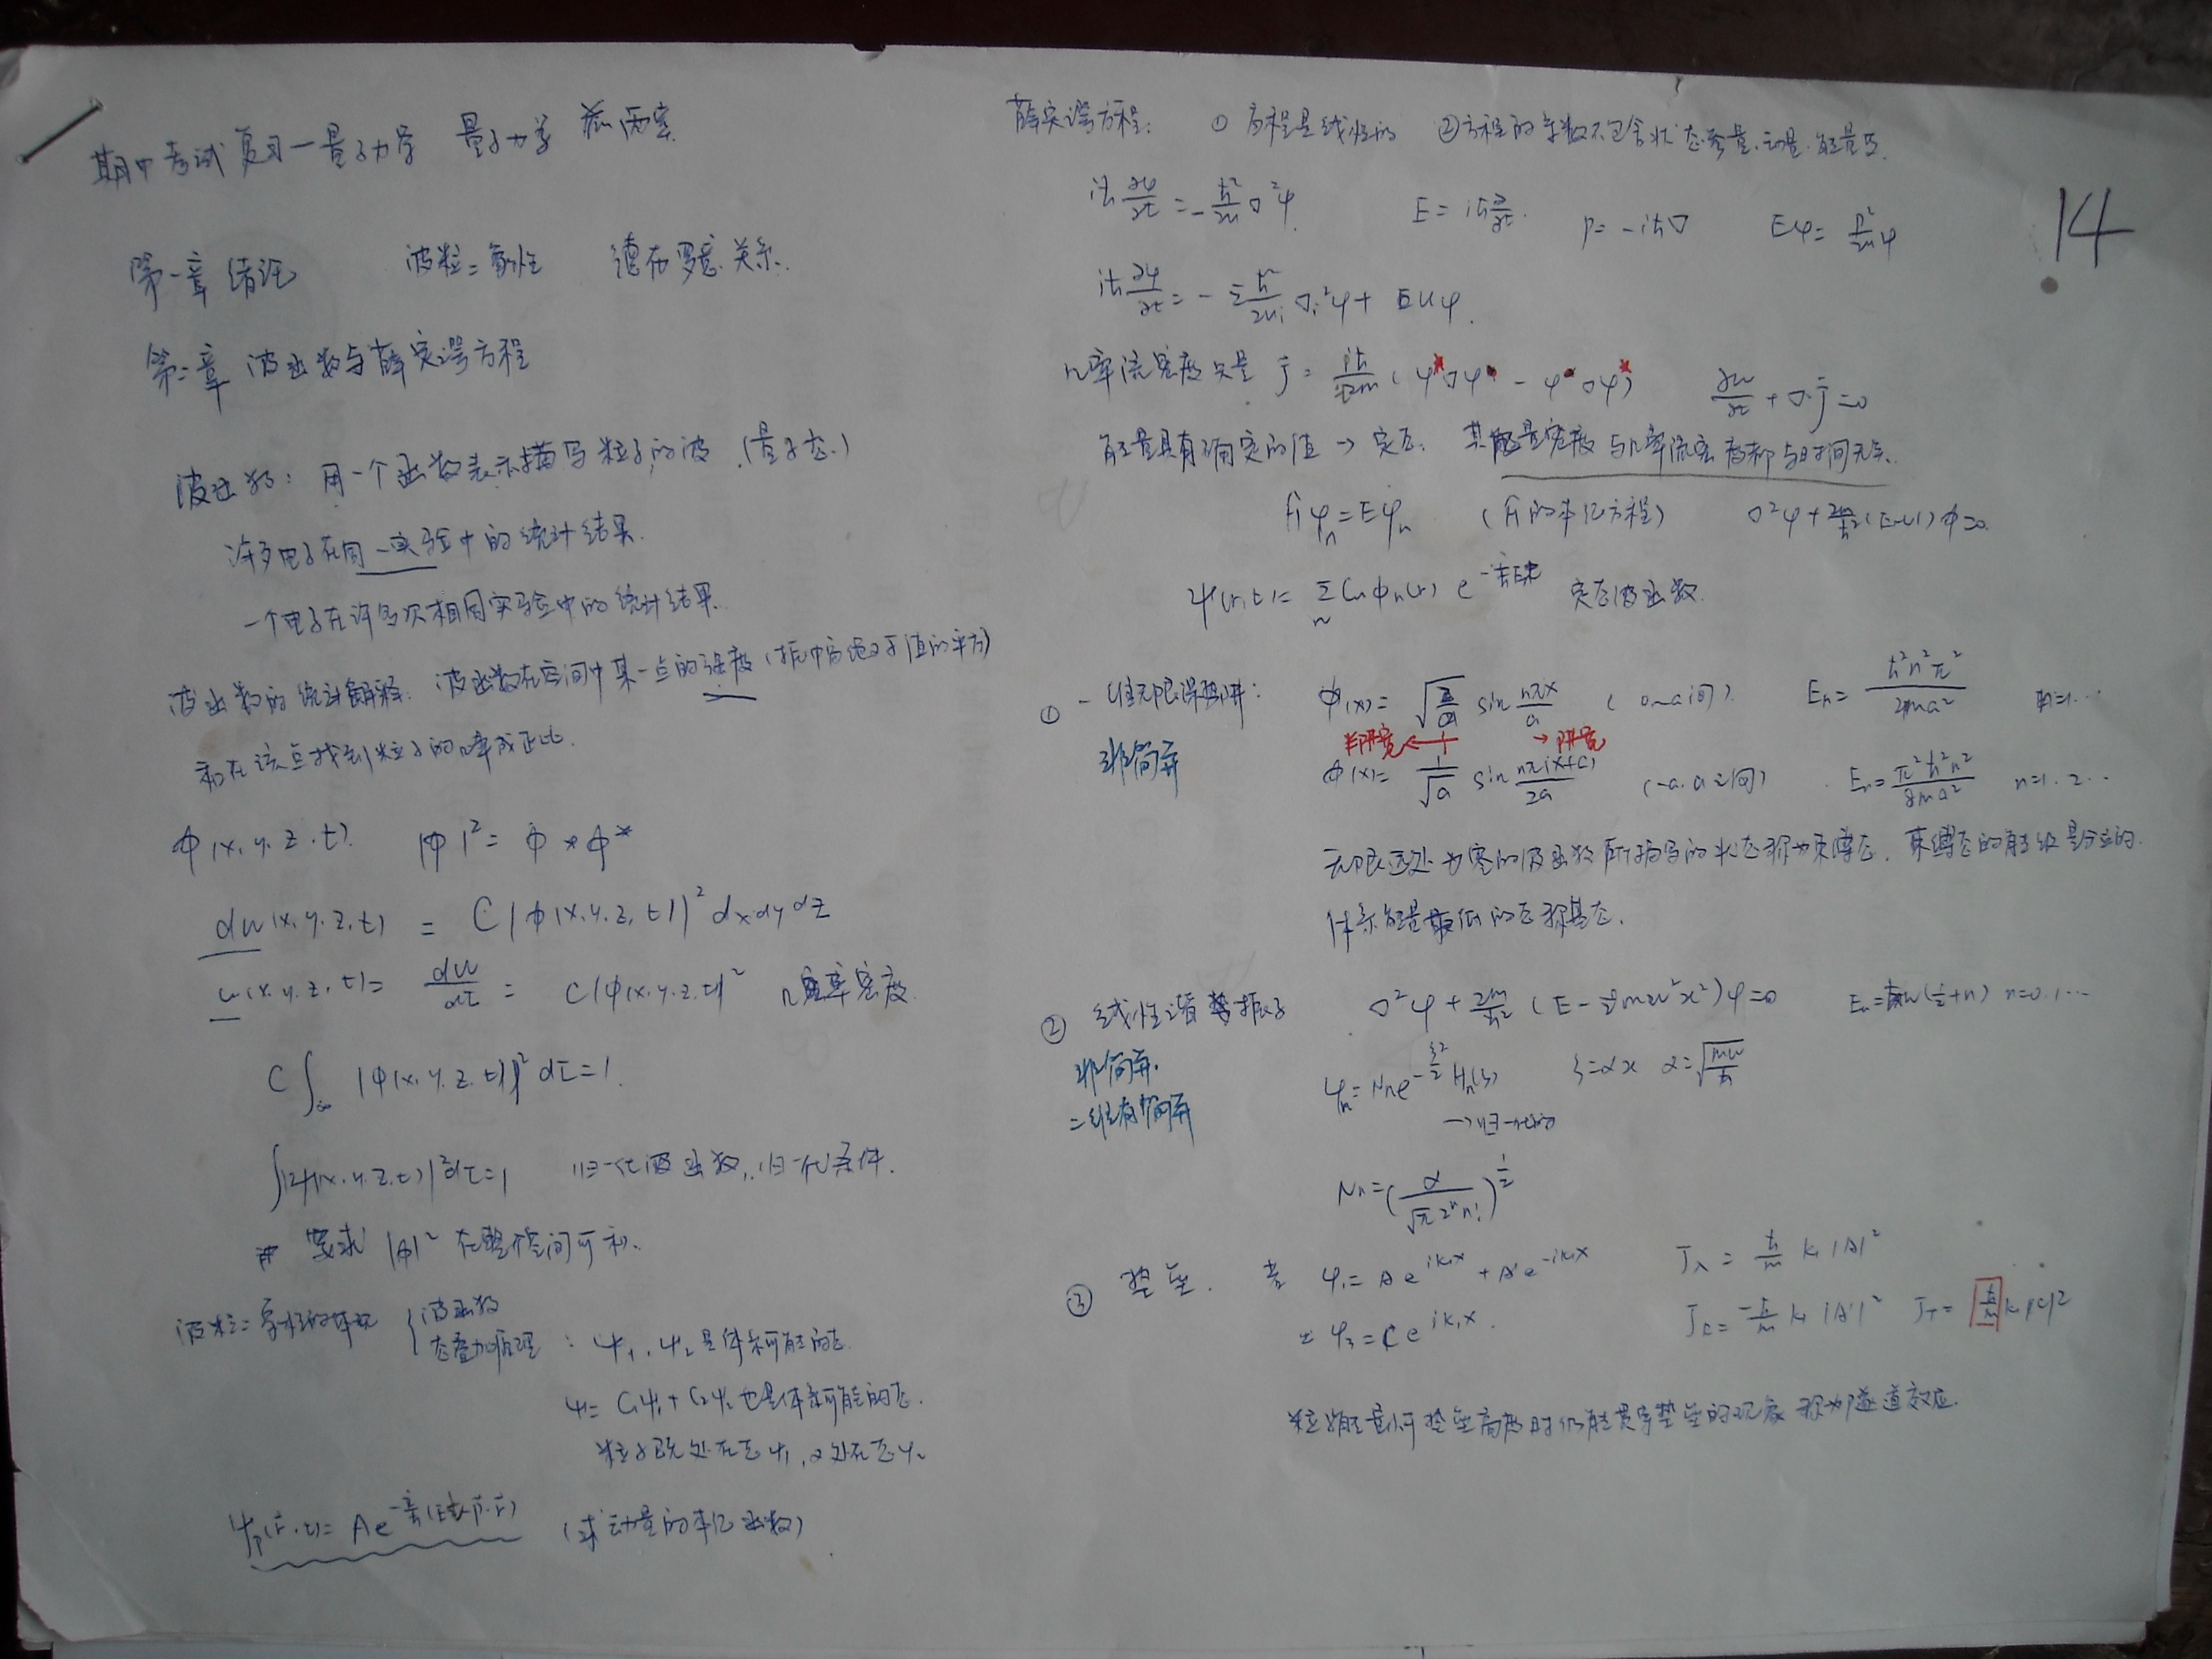 期中考试复习—量子力学 量子力学 前两章
第一章 绪论 波粒二象性 德布罗意关系.
第二章 波函数与薛定谔方程
波函数: 用一个函数表示描写粒子的波.(量子态.)
许多电子在同一实验中的统计结果.
一个电子在许多次相同实验中的统计结果.
波函数的统计解释: 波函数在空间中某一点的强度(振幅绝对值的平方)
和在该点找到粒子的几率成正比.
φ(x.y.z.t). |φ|² = φ*φ*
dw(x.y.z.t) = C|φ(x.y.z.t)|² dxdydz
w(x.y.z.t)= dw/dτ = C|φ(x.y.z.t)|² 几率密度.
C∫∞ |φ(x.y.z.t)|² dτ=1.
∫|Ψ(x.y.z.t)|²dτ=1 归一化波函数, 归一化条件.
要求 |φ|² 在整个空间可积.
波粒二象性的体现 { 波函数
态叠加原理 : ψ₁, ψ₂ 是体系可能的态.
ψ= C₁ψ₁+C₂ψ₂ 也是体系可能的态.
粒子既处在态ψ₁, 又处在态ψ₂
ψp(r.t)= Ae^-i/ħ(Et-p·r) (求动量的本征函数)
薛定谔方程: ① 方程是线性的 ②方程的系数不包含状态参量.动量.能量E.
iħ ∂ψ/∂t = -ħ²/2m ∇²ψ. E = iħ ∂/∂t. p = -iħ∇ Eψ = p²/2m ψ
iħ ∂ψ/∂t = - Σ ħ²/2μi ∇i²ψ + EUψ.
几率流密度矢量 j = iħ/2m (ψ*∇ψ - ψ∇ψ*) ∂w/∂t + ∇·j =0
能量具有确定的值 → 定态. 其能量密度与几率流密度都与时间无关.
Ĥψn=Eψn (Ĥ的本征方程) ∇²ψ + 2m/ħ² (E-U)φ=0.
Ψ(r,t)= Σn Cnφn(r) e^-i/ħEt 定态波函数.
① 一维无限深势阱: φ(x)= √2/a sin nπx/a (0~a间). En= ħ²n²π²/2ma² n=1...
半阱宽← →阱宽
非简并 φ(x)= 1/√a sin nπ(x+a)/2a (-a.a之间) En=π²ħ²n²/8ma² n=1.2..
无限远处为零的波函数所描写的状态称为束缚态. 束缚态的能级是分立的.
体系能量最低的态称基态.
② 线性谐振子 ∇²ψ + 2m/ħ² (E-½mω²x²)ψ=0 En=ħω(½+n) n=0.1...
非简并. ψn=Nne^-ξ²/2 Hn(ξ) ξ=αx α=√mω/ħ
二维有简并 →归一化的
Nn=(α/√π2ⁿn!)^½
③ 势垒. ψ₁= Ae^ik₁x + A'e^-ik₁x Jλ = ħ/m k₁|A|²
ψ₃=Ce^ik₁x. JR= -ħ/m k₁|A'|² JT= ħ/m k₁|C|²
粒子能量小于势垒高度时仍能贯穿势垒的现象称为隧道效应.
14